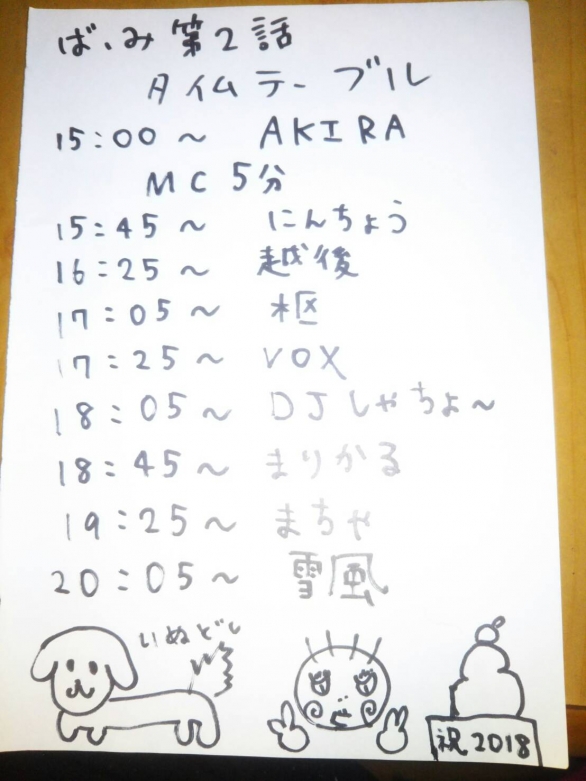 ば、み第2話
タイムテーブル
15:00～ AKIRA
MC 5分
15:45～ にんちょう
16:25～ 越後
17:05～ 枢
17:25～ VOX
18:05～ DJしゃちょ～
18:45～ まりかる
19:25～ まちゃ
20:05～ 雪風
いぬどし
祝2018